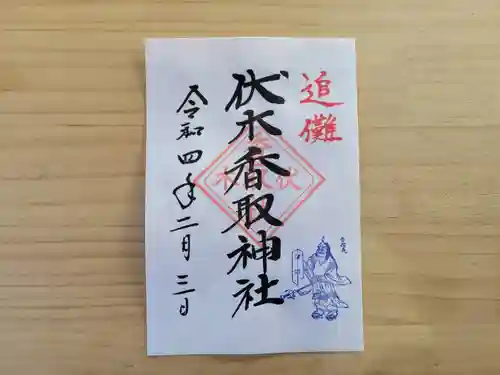 追儺
伏木香取神社
令和四年二月三日